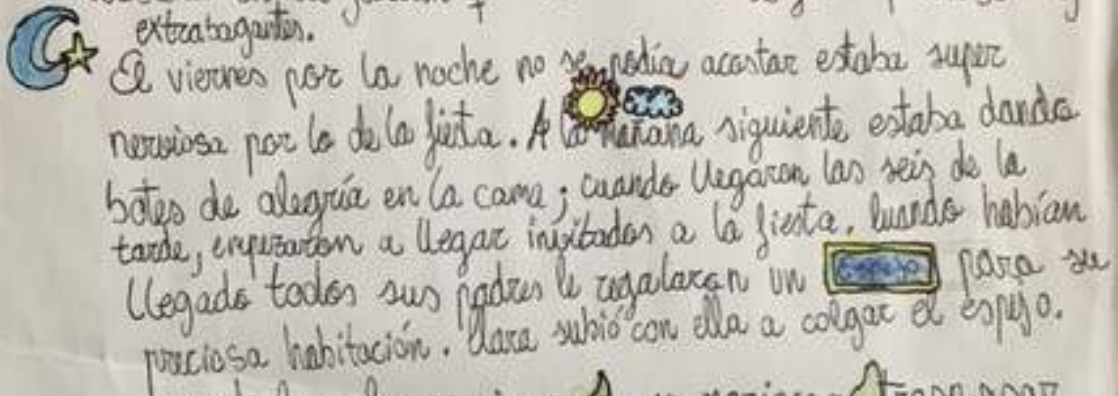 extrabagantes.
El viernes por la noche no se podía acostar estaba super
nerviosa por lo de la fieta. A la mañana siguiente estaba dando
botes de alegría en la cama; cuando llegaron las seis de la
tarde, empezaron a llegar invitados a la fiesta. Cuando habían
llegado todos sus padres le regalaron un espejo para su
preciosa habitación. Clara subió con ella a colgar el espejo.